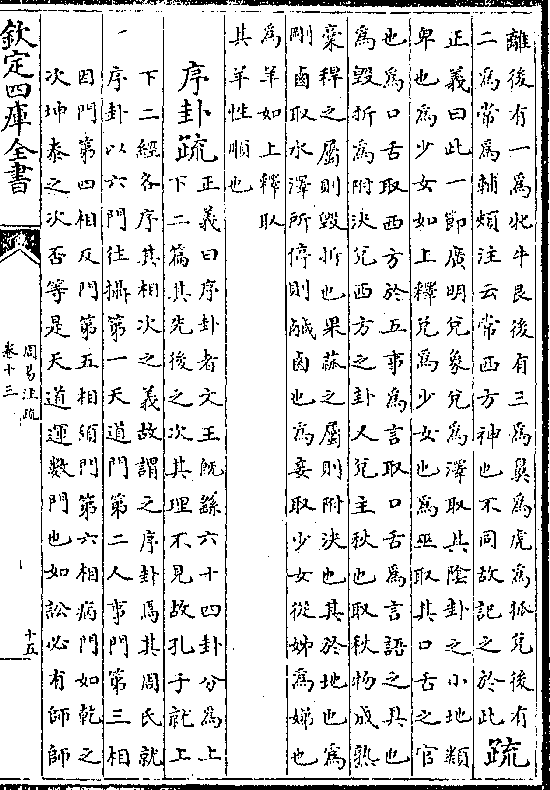 離後有一爲牝牛艮後有三爲鼻爲虎爲狐兌後有
二爲常爲輔頰注云常西方神也不同故記之於此 疏
正義曰此一節廣明兌象兌爲澤取其陰卦之小地類
卑也爲少女如上釋兌爲少女也爲巫取其口舌之官
也爲口舌取西方於五事爲言取口舌爲言語之具也
爲毀折爲附決兌西方之卦又兌主秋也取秋物成熟
稾稈之屬則毀折也果蓏之屬則附決也其於地也爲
剛鹵取水澤所停則鹹鹵也爲妾取少女從姊爲娣也
爲羊如上釋取
其羊性順也
序卦疏
正義曰序卦者文王旣繇六十四卦分爲上
下二篇其先後之次其理不見故孔子就上
下二經各序其相次之義故謂之序卦焉其周氏就
序卦以六門往攝第一天道門第二人事門第三相
因門第四相反門第五相須門第六相病門如乾之
次坤泰之次否等是天道運數門也如訟必有師師
欽定四庫全書
周易注疏
卷十三
十五